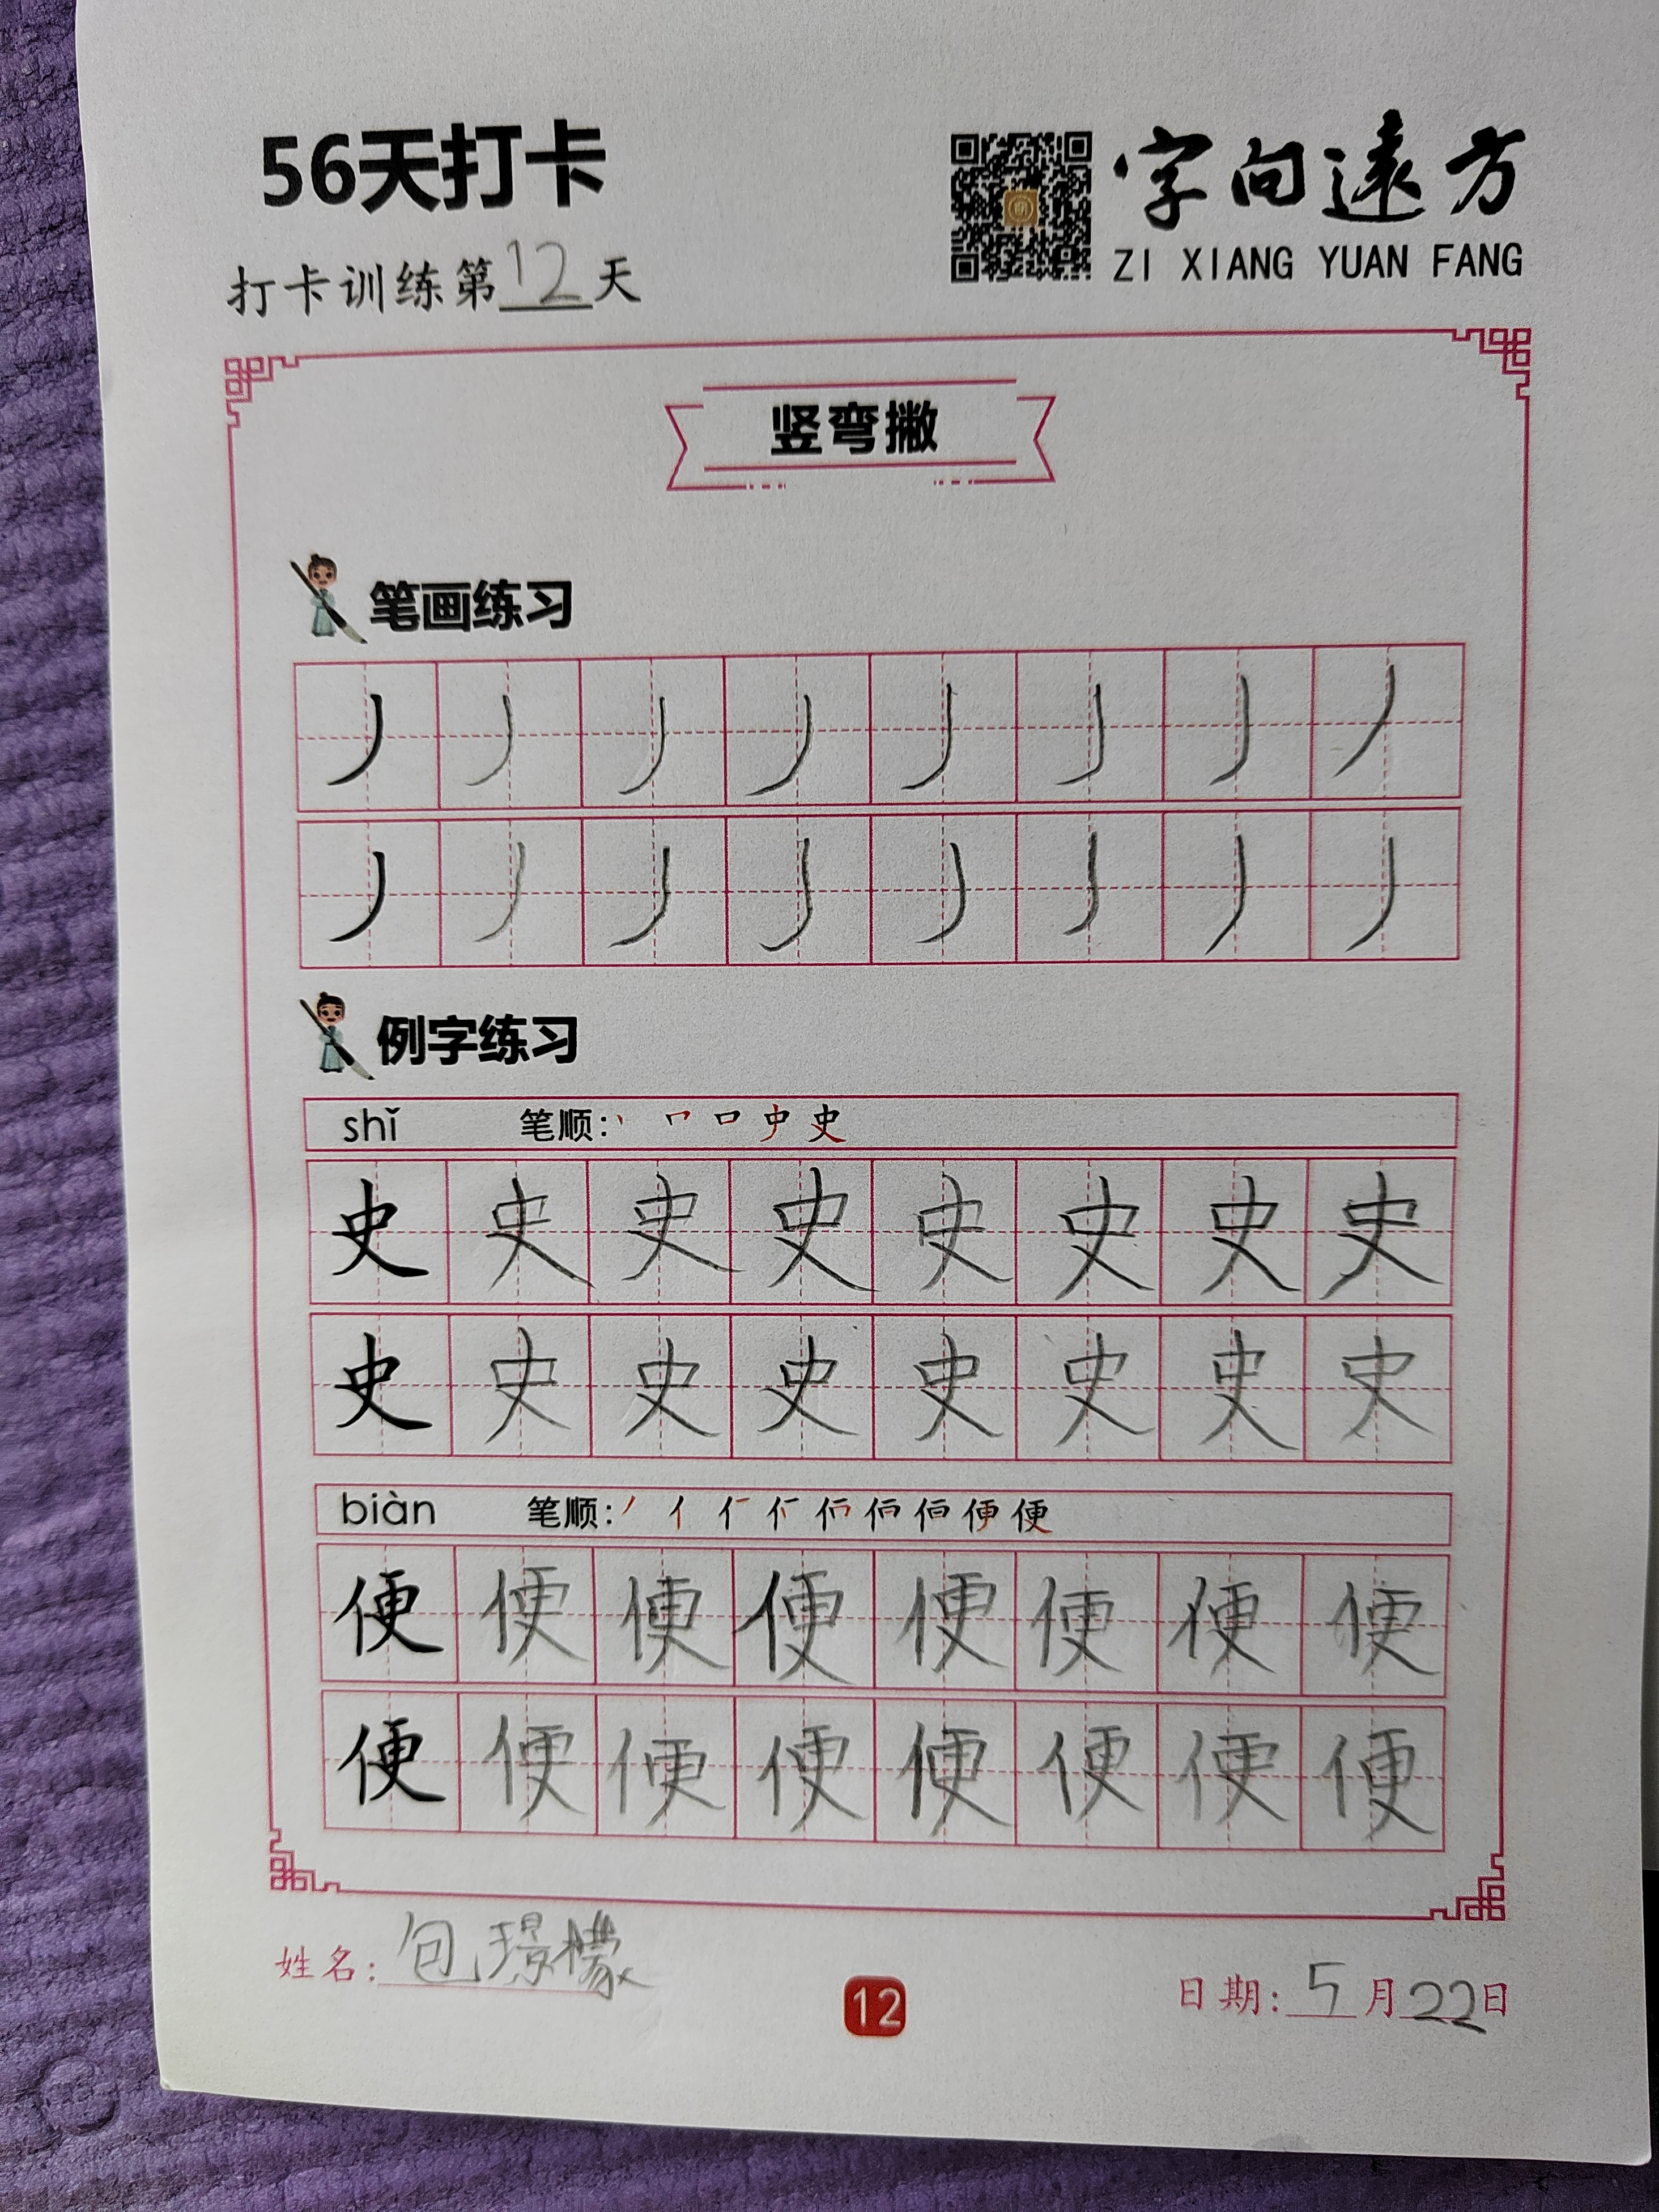 56天打卡
字向遠方
ZI XIANG YUAN FANG
打卡训练第12天
竖弯撇
笔画练习
丿 丿 丿 丿 丿 丿 丿 丿
丿 丿 丿 丿 丿 丿 丿 丿
例字练习
shǐ 笔顺: 丶 𠃍 口 史 史
史 史 史 史 史 史 史 史
史 史 史 史 史 史 史 史
biàn 笔顺:
便 便 便 便 便 便 便 便
便 便 便 便 便 便 便 便
姓名: 包璟檬
12
日期: 5月22日